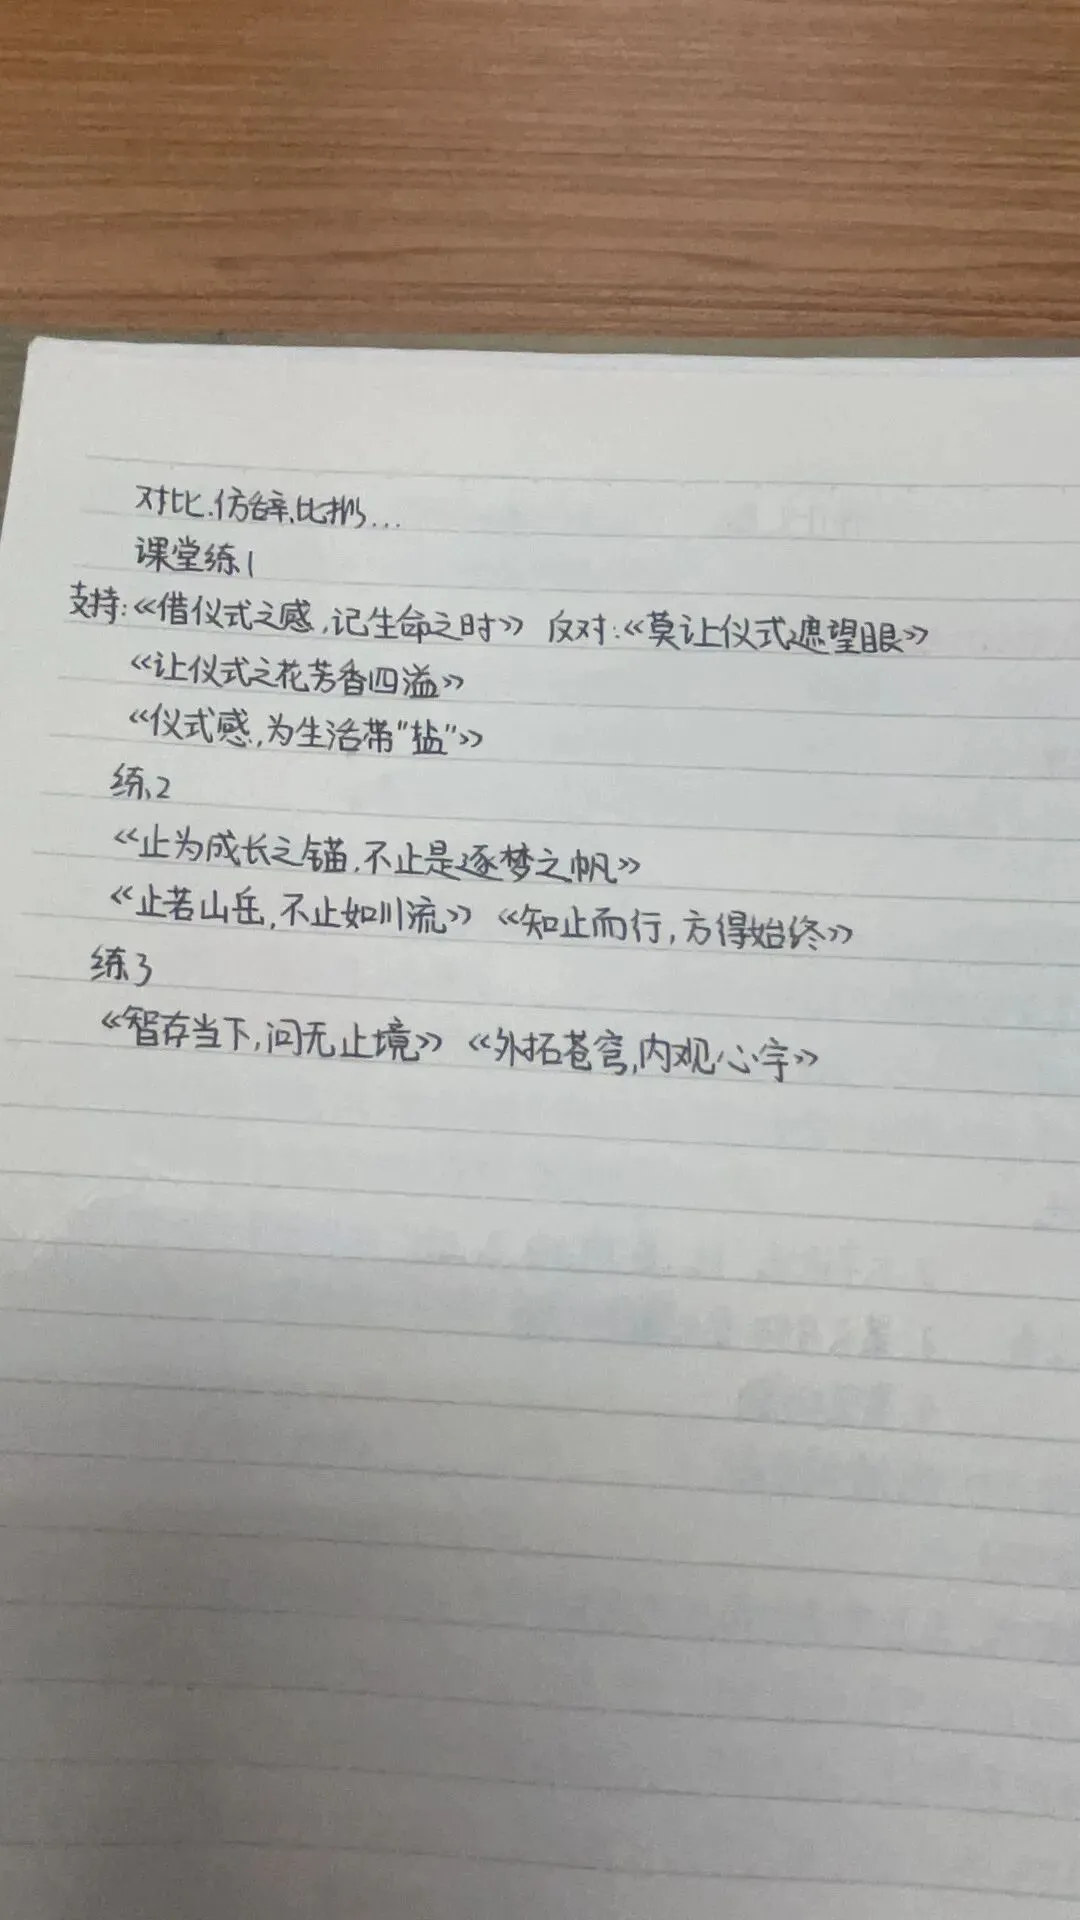 对比、仿辞、比拟...
课堂练1
支持:《借仪式之感,记生命之时》 反对:《莫让仪式遮望眼》
《让仪式之花芳香四溢》
《仪式感,为生活带"盐"》
练2
《止为成长之锚,不止是逐梦之帆》
《止若山岳,不止如川流》 《知止而行,方得始终》
练3
《智存当下,问无止境》 《外拓苍穹,内观心宇》